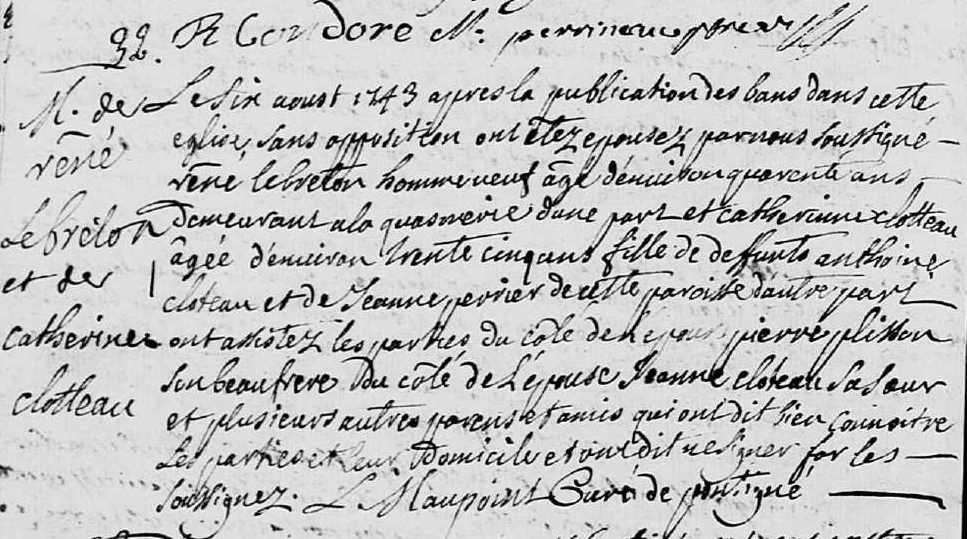 32. R Condore M: perrineau ptre
M. de
renné
Lebréton
et de
catherine
clotteau
Le six aoust 1743 apres la publication des bans dans cette
eglise, sans opposition ont etez epousez par nous soussigné
rené lebreton homme veuf âgé d'énuiron quarente ans
demeurant a la quasnerie dune part et catherinne clotteau
âgée d'énuiron trente cinq ans fille de deffunts anthoine
cloteau et de Jeanne perrier de cette paroisse dautre part
ont assistez les parties du côté de lepoux pierre plisson
son beaufrere du côté de L'épouse Jeanne cloteau sa sœur
et plusieurs autres parens et amis qui ont dit bien connoitre
les parties et leur Domicile et ont dit ne signer for les
soussignez. L Maupoint Curé de pontigné